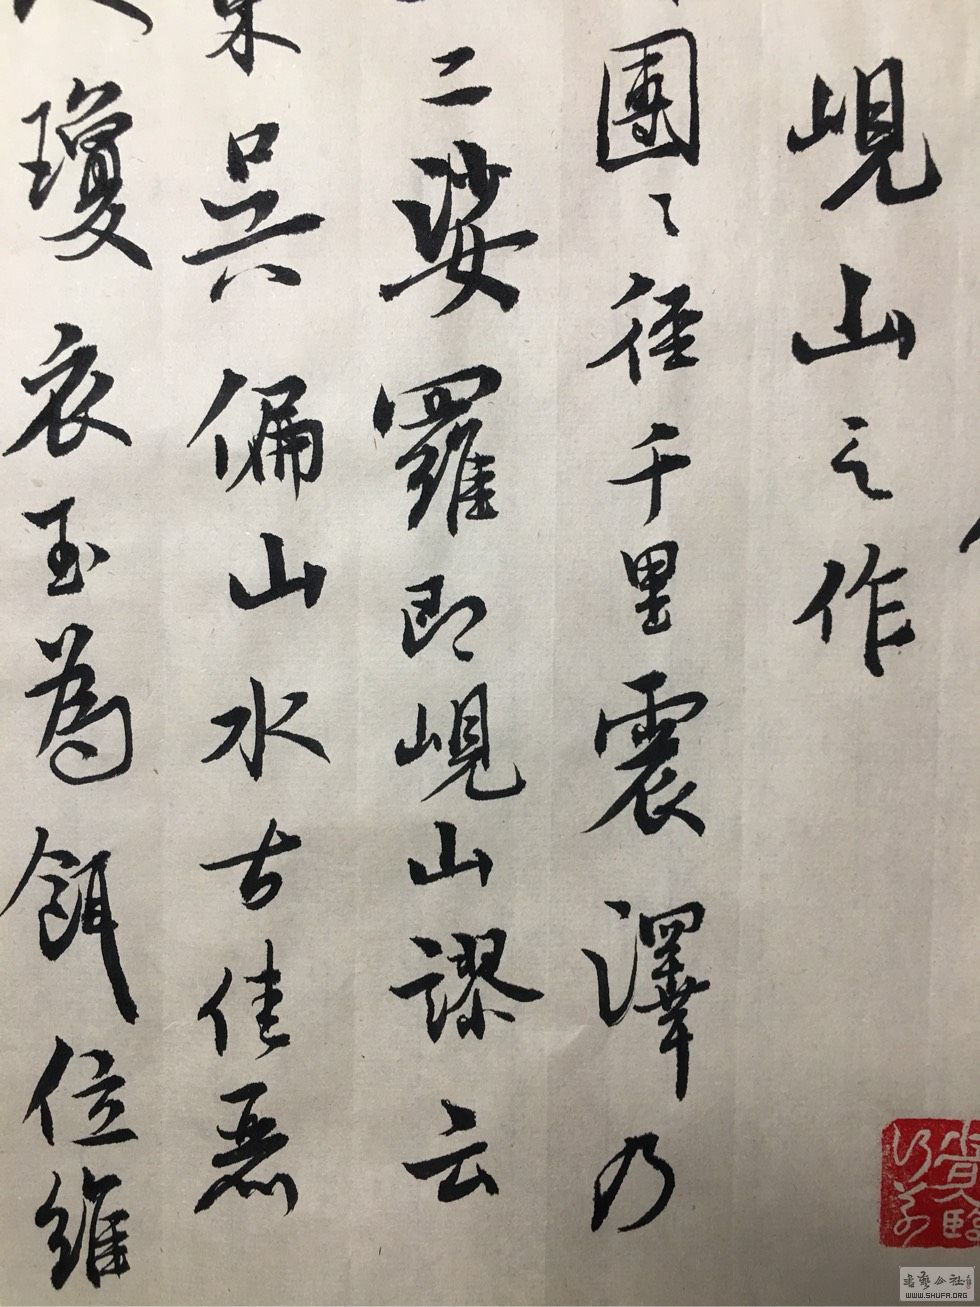 峴山之作
團々徑千里震澤乃
二娑羅即峴山謬云
吳偏山水古佳惡
瓊衣玉為餌位維
書藝公社
WWW.SHUFA.ORG